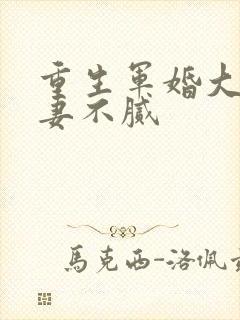 重生军婚大
妻不腻
馬克西-洛佩